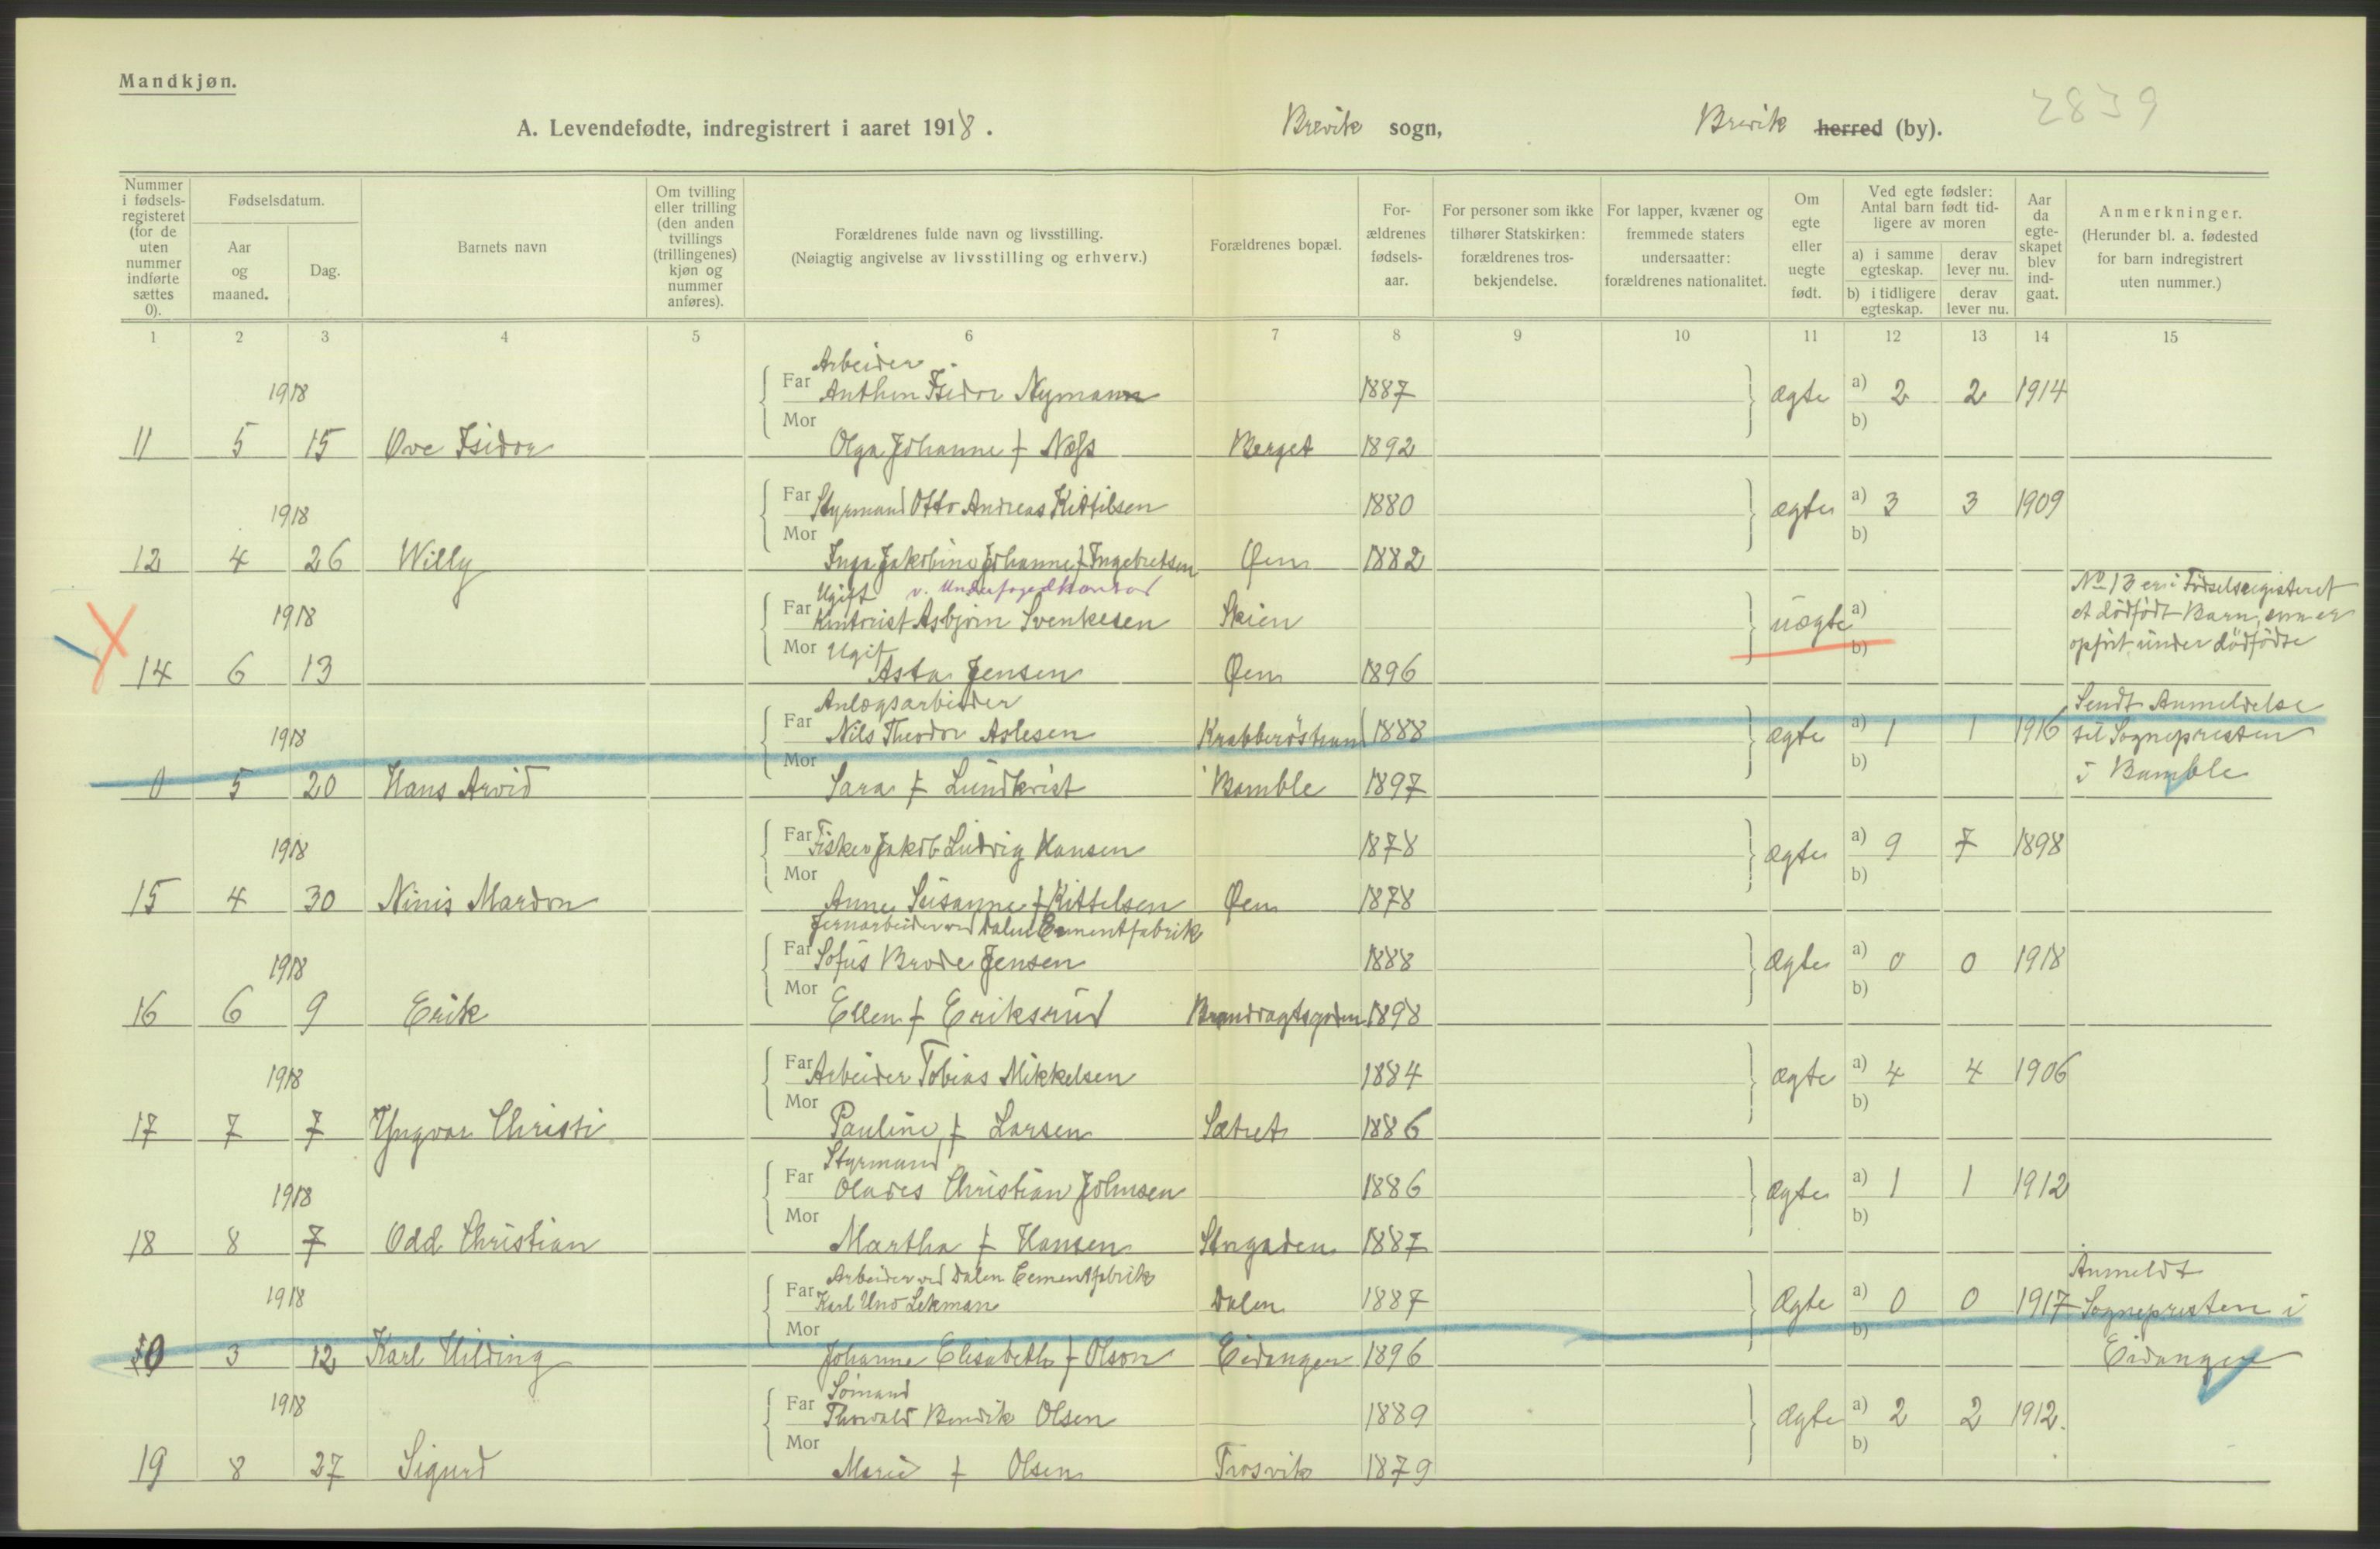 Mandkjøn.
2839
A. Levendefødte, indregistrert i aaret 1918. Brevik sogn, Brevik herred (by).
Nummer i fødsels-registeret (for de uten nummer indførte sættes 0).
Fødselsdatum.
Aar og maaned.
Dag.
Barnets navn
Om tvilling eller trilling (den anden tvillings (trillingenes) kjøn og nummer anføres).
Forældrenes fulde navn og livsstilling.
(Nøiagtig angivelse av livsstilling og erhverv.)
Forældrenes bopæl.
For-ældrenes fødsels-aar.
For personer som ikke tilhører Statskirken: forældrenes tros-bekjendelse.
For lapper, kvæner og fremmede staters undersaatter: forældrenes nationalitet.
Om egte eller uegte født.
Ved egte fødsler: Antal barn født tid-ligere av moren
a) i samme egteskap. derav lever nu.
b) i tidligere egteskap. derav lever nu.
Aar da egte-skapet blev ind-gaat.
Anmerkninger.
(Herunder bl. a. fødested for barn indregistrert uten nummer.)
1 2 3 4 5 6 7 8 9 10 11 12 13 14 15
Arbeider
1918 Far Anthon Isidor Nymann 1887 ægte a) 2 2 1914
Mor b)
11 5 15 Ove Isidor Olga Johanne f Næss Berget 1892
1918 Far Styrmand Otto Andreas Kittilsen 1880 ægte a) 3 3 1909
Mor b)
12 4 26 Willy Inga Jakobine Johanne f Ingebretsen Øen 1882
Ugift v. Underfogedkontor
1918 Far Kontorist Asbjörn Svenkesen Skien uægte a)
Mor Ugift b)
14 6 13 Asta Jensen Øen 1896
No 13 er i Födselsregisteret
et dödfödt Barn, som er
opfört under dödfödte
Anlægsarbeider
1918 Far Nils Theodor Aslesen Krabberöstrand 1888 ægte a) 1 1 1916
Mor b)
0 5 20 Hans Arvid Sara f Lundkvist Bamble 1897
Sendt Anmeldelse
til Sognepresten
i Bamble
1918 Far Fisker Jakob Ludvig Hansen 1878 ægte a) 9 7 1898
Mor b)
15 4 30 Ninis Mardon Anne Susanne f Kittelsen Øen 1878
Jernarbeider ved Dalen Cementfabrik
1918 Far Sofus Brode Jensen 1888 ægte a) 0 0 1918
Mor b)
16 6 9 Erik Ellen f Eriksrud Brandvagtsgaden 1898
1918 Far Arbeider Tobias Mikkelsen 1884 ægte a) 4 4 1906
Mor b)
17 7 7 Yngvar Christi Pauline f Larsen Sætret 1886
Styrmand
1918 Far Olades Christian Johnsen 1886 ægte a) 1 1 1912
Mor b)
18 8 7 Odd Christian Martha f Hansen Storgaden 1887
Arbeider ved Dalen Cementfabrik
1918 Far Karl Uno Lekman Dalen 1887 ægte a) 0 0 1917
Mor b)
0 3 12 Karl Hilding Johanne Elisabeth f Olson Eidanger 1896
Anmeldt
Sognepresten i
Eidanger
Sömand
1918 Far Thorvald Bendik Olsen 1889 ægte a) 2 2 1912.
Mor b)
19 8 27 Sigurd Marie f Olsen Trosvik 1879